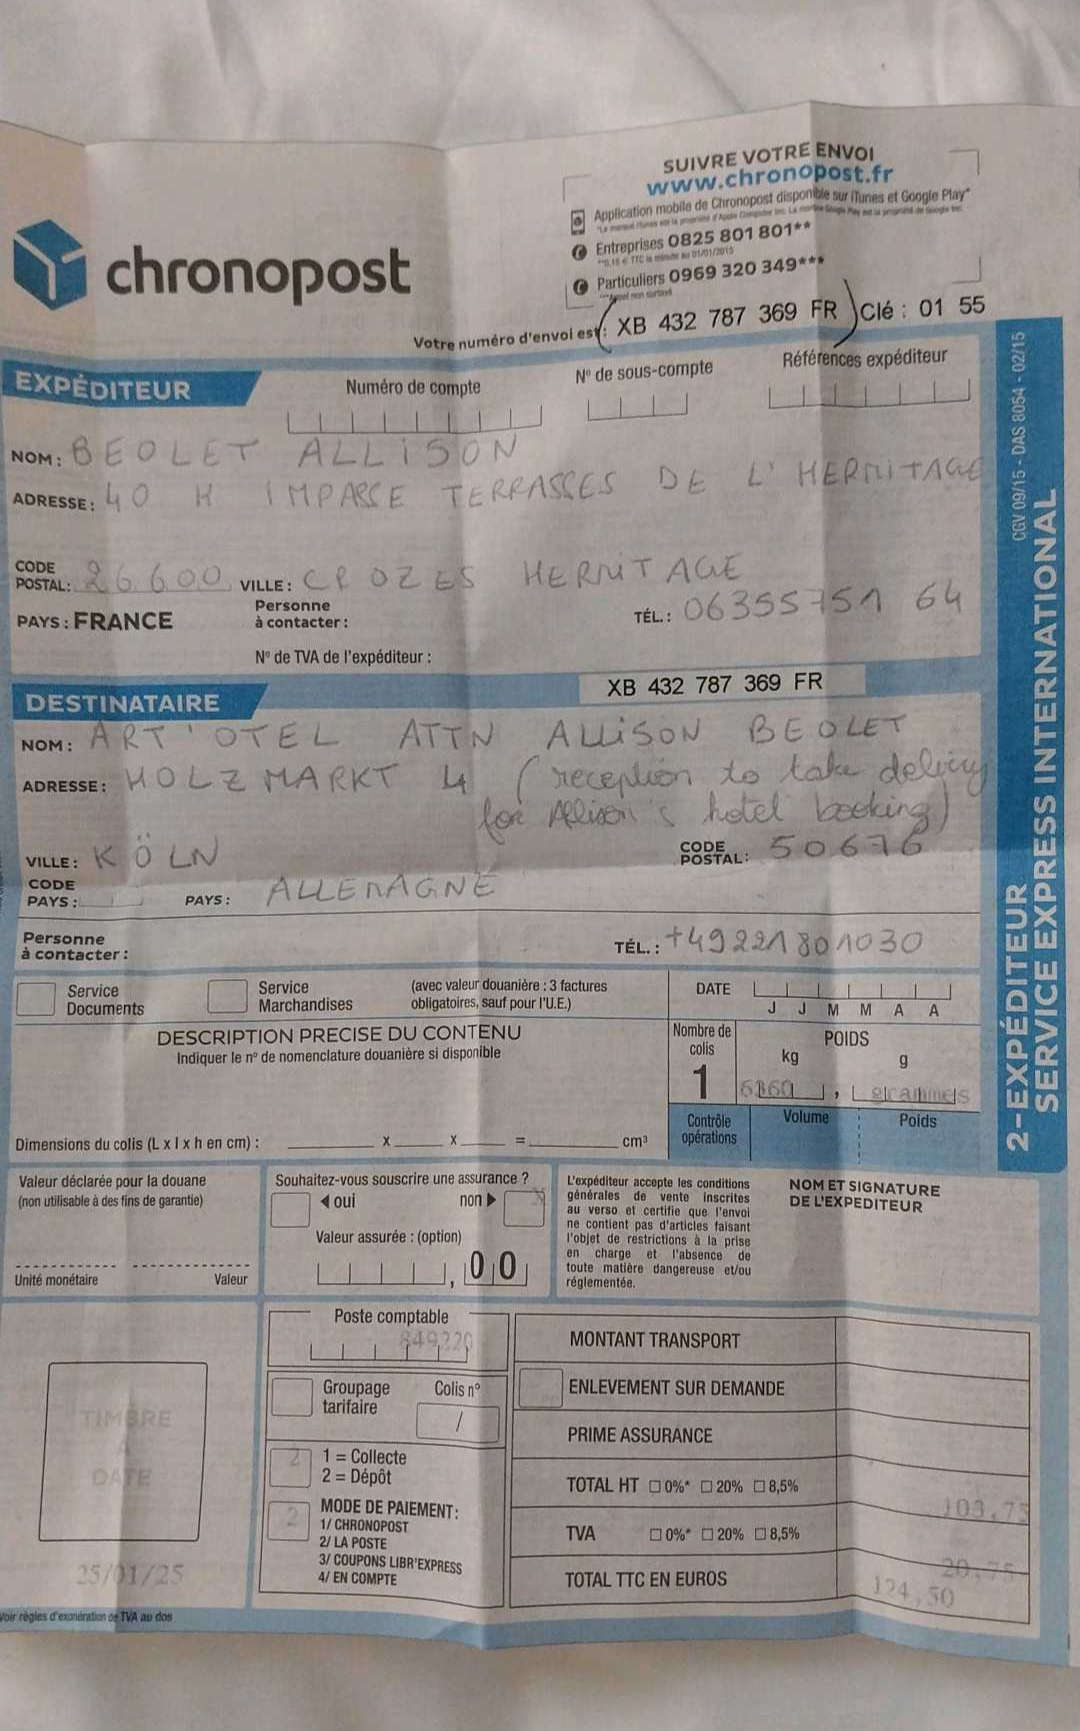 SUIVRE VOTRE ENVOI
www.chronopost.fr
Application mobile de Chronopost disponible sur iTunes et Google Play*
Entreprises 0825 801 801**
**0,15 € TTC la minute au 01/01/2015
Particuliers 0969 320 349***
***Appel non surtaxé
chronopost
Votre numéro d'envoi est : XB 432 787 369 FR Clé : 01 55
EXPÉDITEUR
Numéro de compte
N° de sous-compte
Références expéditeur
NOM : BEOLET ALLISON
ADRESSE : 40 H IMPASSE TERRASSES DE L'HERMITAGE
CODE POSTAL : 26600 VILLE : CROZES HERMITAGE
PAYS : FRANCE
Personne à contacter :
TÉL. : 0635575164
N° de TVA de l'expéditeur :
XB 432 787 369 FR
DESTINATAIRE
NOM : ART'OTEL ATTN ALLISON BEOLET
ADRESSE : HOLZMARKT 4 (reception to take delivery
for Allison's hotel booking)
VILLE : KÖLN
CODE POSTAL : 50676
CODE PAYS :
PAYS : ALLEMAGNE
Personne à contacter :
TÉL. : +49221801030
Service Documents
Service Marchandises
(avec valeur douanière : 3 factures obligatoires, sauf pour l'U.E.)
DATE
J J M M A A
DESCRIPTION PRECISE DU CONTENU
Indiquer le n° de nomenclature douanière si disponible
Nombre de colis
1
POIDS
kg
g
grammes
Dimensions du colis (L x l x h en cm) : x x = cm³
Contrôle opérations
Volume
Poids
Valeur déclarée pour la douane
(non utilisable à des fins de garantie)
Unité monétaire
Valeur
Souhaitez-vous souscrire une assurance ?
oui
non
Valeur assurée : (option)
, 00
L'expéditeur accepte les conditions
générales de vente inscrites
au verso et certifie que l'envoi
ne contient pas d'articles faisant
l'objet de restrictions à la prise
en charge et l'absence de
toute matière dangereuse et/ou
réglementée.
NOM ET SIGNATURE
DE L'EXPEDITEUR
TIMBRE
A
DATE
25/01/25
Poste comptable
849220
Groupage tarifaire
Colis n°
/
2
1 = Collecte
2 = Dépôt
2
MODE DE PAIEMENT :
1/ CHRONOPOST
2/ LA POSTE
3/ COUPONS LIBR'EXPRESS
4/ EN COMPTE
MONTANT TRANSPORT
ENLEVEMENT SUR DEMANDE
PRIME ASSURANCE
TOTAL HT 0%* 20% 8,5%
103,75
TVA 0%* 20% 8,5%
20,75
TOTAL TTC EN EUROS
124,50
Voir règles d'exonération de TVA au dos
2-EXPÉDITEUR
SERVICE EXPRESS INTERNATIONAL
CGV 09/15 - DAS 8054 - 02/15